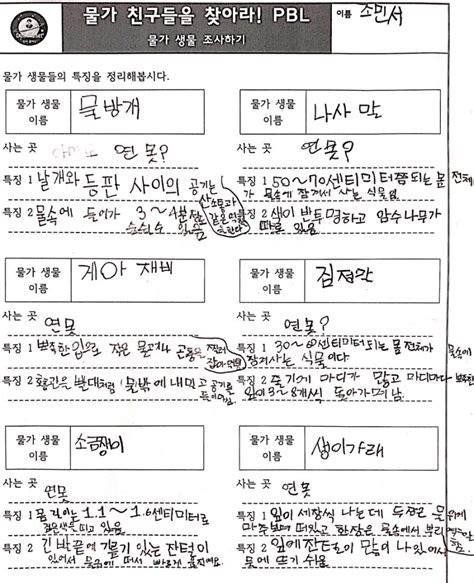 물가 친구들을 찾아라! PBL
물가 생물 조사하기
이름 소민서
물가 생물들의 특징을 정리해봅시다.
물가 생물 이름 물방개
사는 곳 연못?
특징 1 날개와 등판 사이의 공기는 산소통과 같은 역할을 한다
특징 2 물속에 들어가 3~4분 정도 숨쉴 수 있음
물가 생물 이름 나사말
사는 곳 연못?
특징 1 50~70센티미터쯤 되는 몸 전체가 물속에 잠겨서 사는 식물임
특징 2 색이 반투명하고 암수나무가 따로 있음
물가 생물 이름 게아재비
사는 곳 연못
특징 1 뾰족한 입으로 작은 물고기나 곤충을 찔러 잡아먹음
특징 2 호흡관을 빨대처럼 물밖에 내밀고 공기를
물가 생물 이름 검정말
사는 곳 연못?
특징 1 30~60센티미터 되는 몸 전체가 물속에 잠겨사는 식물이다
특징 2 줄기에 마디가 많고 마디마다 뾰족한 잎이 3~8개씩 돌아가며 남
물가 생물 이름 소금쟁이
사는 곳 연못
특징 1 몸길이는 1.1~1.6센티미터로 검은색을 띠고 있음
특징 2 긴 발 끝에 기름기 있는 잔털이 있어서 물위에 떠서 빠르게 움직여요
물가 생물 이름 생이가래
사는 곳 연못
특징 1 잎이 세장씩 나는데 두장은 물위에 마주보며 떠있고 한장은 물속에서 뿌리 역할을 함
특징 2 잎에 잔털이 많이 나 있어서 물에 뜨기 쉬움